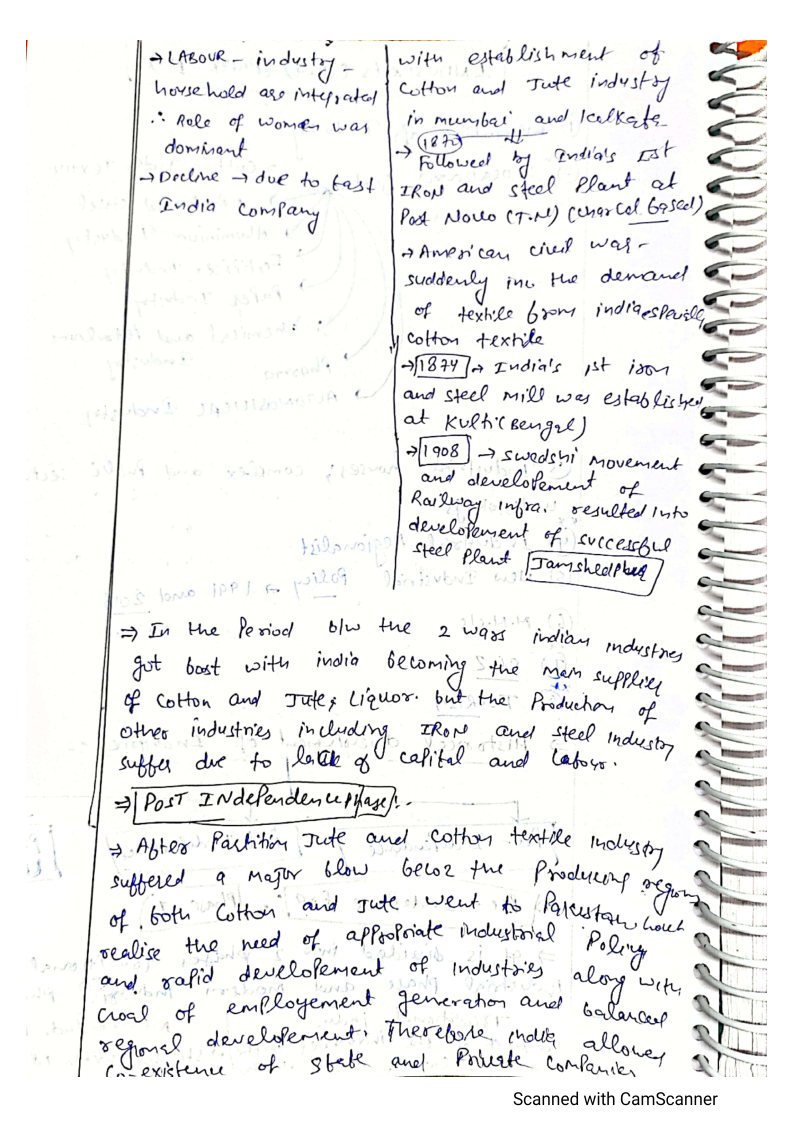 → LABOUR - industry -
household are integrated
∴ Role of women was
dominant
→ Decline → due to East
India Company
with establishment of
Cotton and Jute industry
in mumbai and kolkata
→ 1870
Followed by India's Ist
IRON and steel Plant at
Post Novo (T.N) (charcol based)
→ American civil war -
suddenly inc the demand
of textile from india especially
cotton textile
→ 1874 → India's 1st iron
and steel mill was established
at Kulti (Bengal)
→ 1908 → swedshi movement
and developement of
Railway infra. resulted into
developement of successful
steel Plant Jamshedpur
⇒ In the Period b/w the 2 wars indian industries
got bost with india becoming the main supplier
of cotton and Jute, Liquor. but the Production of
other industries including IRON and steel industry
suffer due to lack of capital and Labour.
⇒ POST INdependence phase:-
→ After Partition Jute and cotton textile industry
suffered a major blow becoz the Producing regions
of both Cotton and Jute went to Pakistan
realise the need of appropriate industrial Policy
and rapid developement of industries along with
Goal of employement generation and balanced
regional developement. Therefore india allowed
Co-existence of State and Private Companies
Scanned with CamScanner